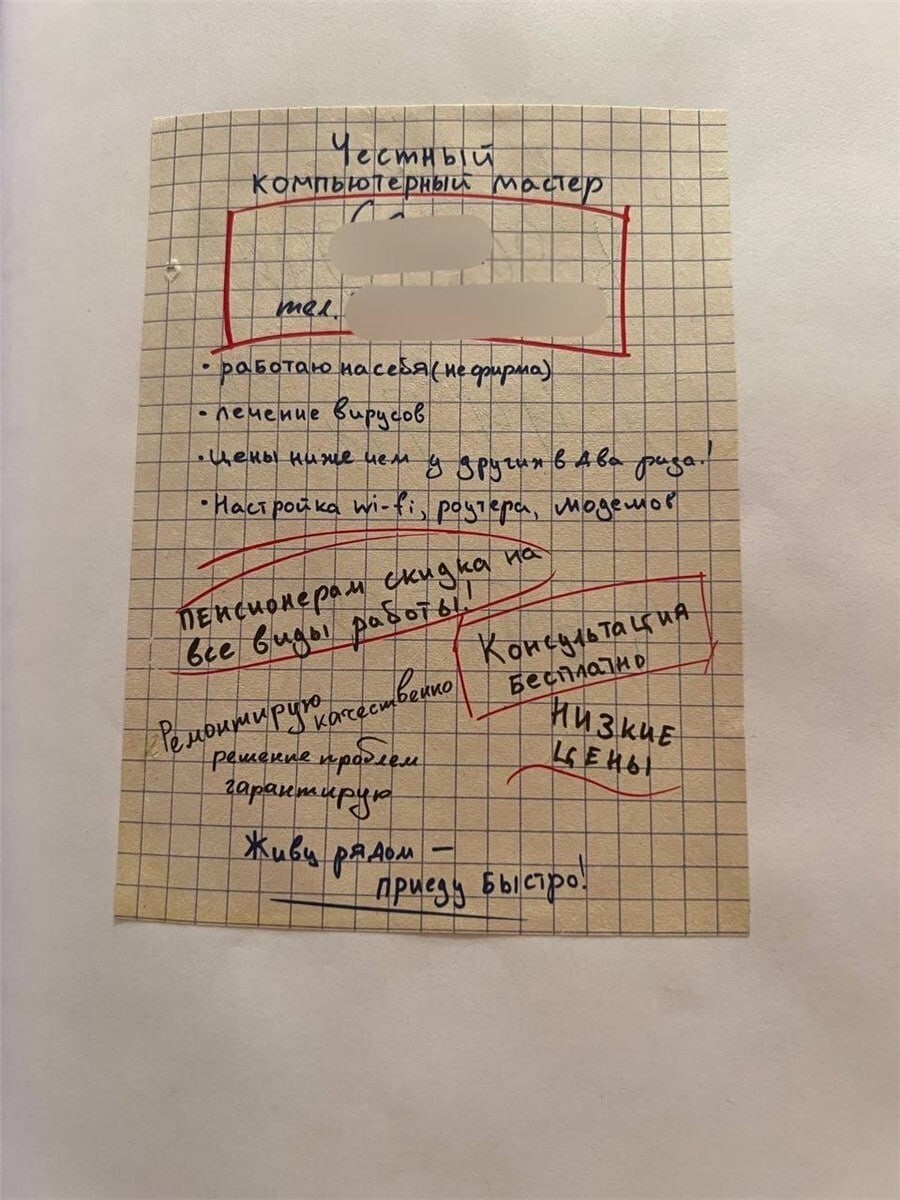 Честный
компьютерный мастер
тел.
• работаю на себя (не фирма)
• лечение вирусов
• Цены ниже чем у других в два раза!
• Настройка wi-fi, роутера, модемов
Пенсионерам скидка на
все виды работы!
Консультация
бесплатно
Низкие
цены
Ремонтирую качественно
решение проблем
гарантирую
Живу рядом —
приеду быстро!